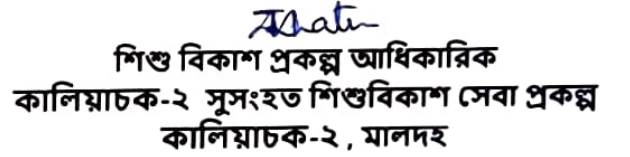 শিশু বিকাশ প্রকল্প আধিকারিক
কালিয়াচক-২ সুসংহত শিশুবিকাশ সেবা প্রকল্প
কালিয়াচক-২, মালদহ